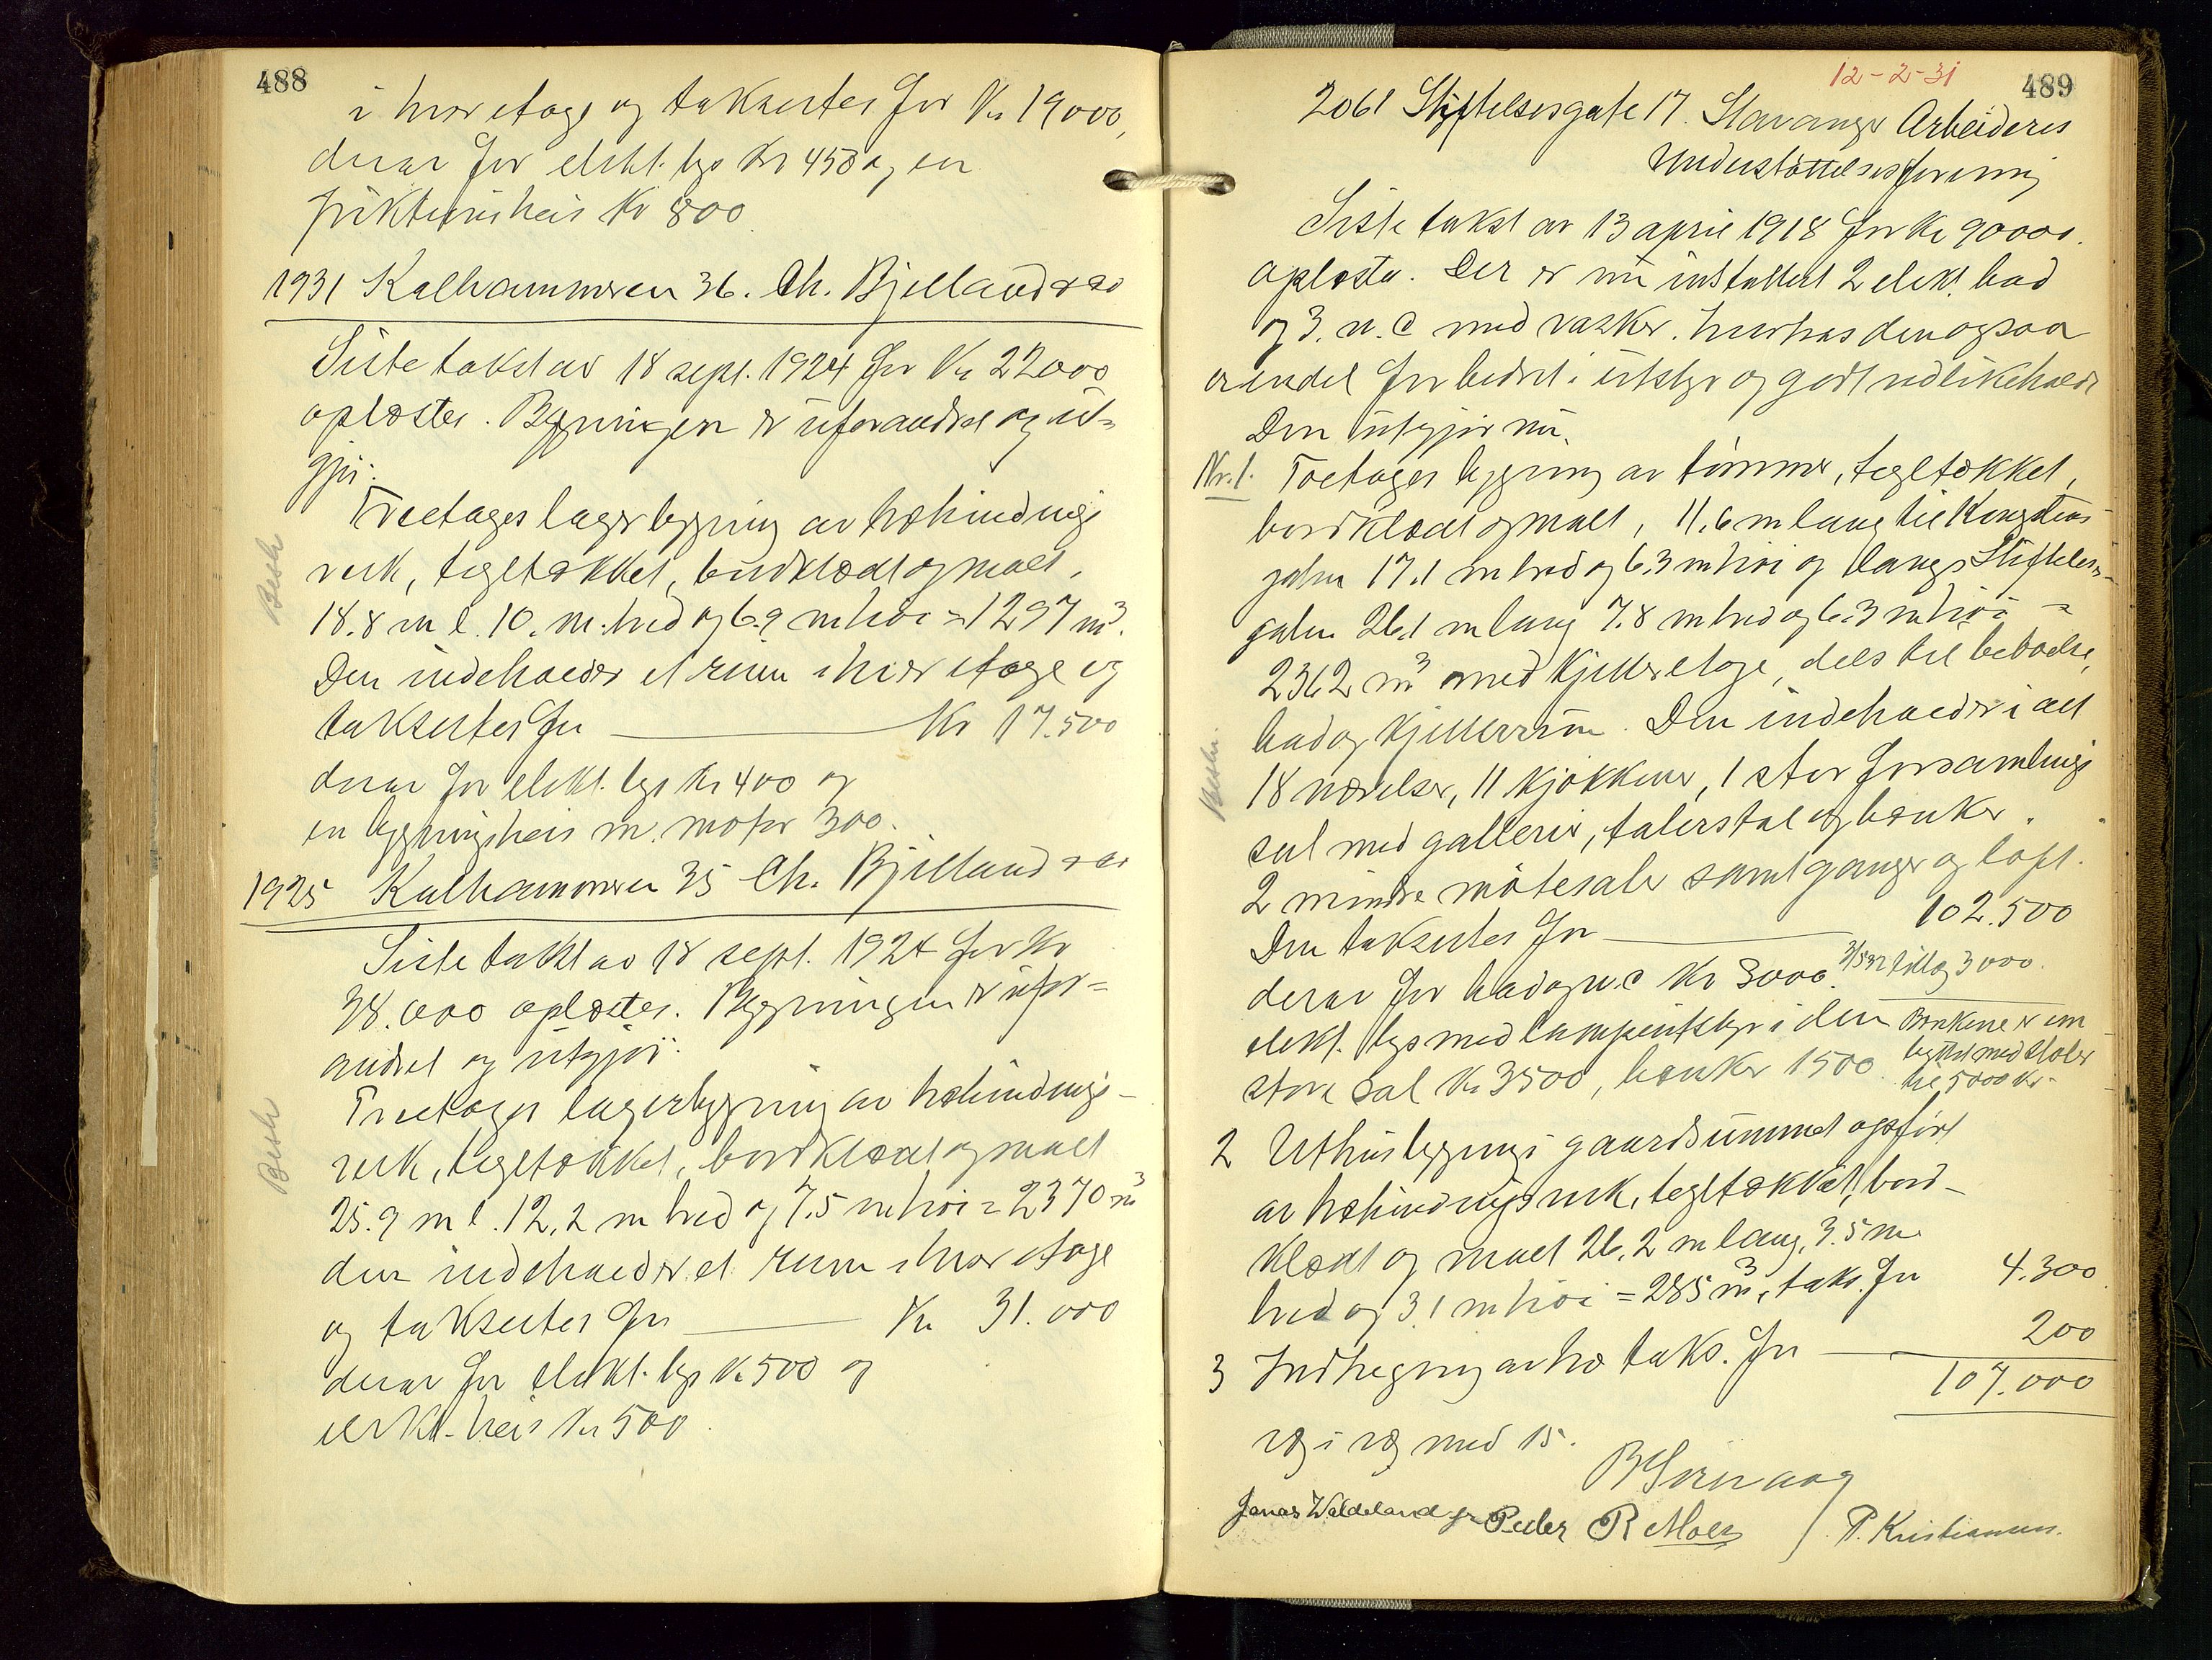 488
i hver etage og takseertes for Kr 19000,
derav for elekt. lys Kr 450 og en
friktionsheis Kr 800
1931 Kalhammeren 36. Ch. Bjelland & Co
Siste takst av 18 sept. 1924 for Kr 22000
oplæstes. Bygningen er uforandret og ut-
gjör:
Treetages lagerbygning av træbindings
verk, tegltækket, bordklædt og malt,
18.8 m l. 10. m. bred og 6.9 m höi = 1297 m³.
Den indeholder et rum i hver etage og
taksertes for Kr 17.500
derav for elekt. lys Kr 400 og
en bygningsheis m. motor 300.
1925 Kalhammeren 35 Ch. Bjelland & Co
Siste takst av 18 sept. 1924 for Kr
38.000 oplæstes. Bygningen er ufor-
andret og utgjör:
Treetages lagerbygning av træbindings-
verk, tegltækket, bordklædt og malt
25.9 m l. 12,2 m bred og 7.5 m höi = 2370 m³
den indeholder et rum i hver etage
og taksertes for Kr 31.000
derav for elekt. lys Kr 500 og
elekt. heis Kr 500.
Besk
Besk
12-2-31
489
2061 Stiftelsesgate 17. Stavanger Arbeideres
Understöttelsesforening
Siste takst av 13 april 1918 for Kr 90000.
oplæstes. Der er nu installert 2 elekt. bad
og 3. w.c med vasker. huset den ogsaa
er endel forbedret i utstyr og godt vedlikeholdt
Den utgjör nu.
Nr. 1. Toetages bygning av tömmer, tegltækket,
bordklædt og malt, 11,6 m lang til Kongsteins
gaten 17.1 m bred og 6.3 m höi og langs Stiftelses-
gaten 26.1 m lang 7.8 m bred og 6.3 m höi =
2362 m³ med Kjelleretage, dels til beboelse,
bad og Kjellerrum. Den indeholder i alt
18 værelser, 11 kjökkener, 1 stor forsamlings
sal med gallerier, talerstol og bænker.
2 mindre mötesaler samt ganger og loft.
Den taksertes for 102.500
derav for bad og w.c Kr 3000. 3/5 32 tillæg 3000.
elekt. lys med lampeutstyr i den
store sal Kr 3500, bænker 1500
Bænkene er om
byttet med stoler
til 5000 Kr.
2 Uthusbygning i gaardsrummet opfört
av træbindingsverk, tegltækket, bord-
klædt og malt 26,2 m lang, 3.5 m
bred og 3.1 m höi = 285 m³, taks. for 4.300
3 Indhegning av træ taks. for 200
107.000
væg i væg med 15.
Jonas Waldeland jr Peder R Moen P. Kristiansen.
Beskr.